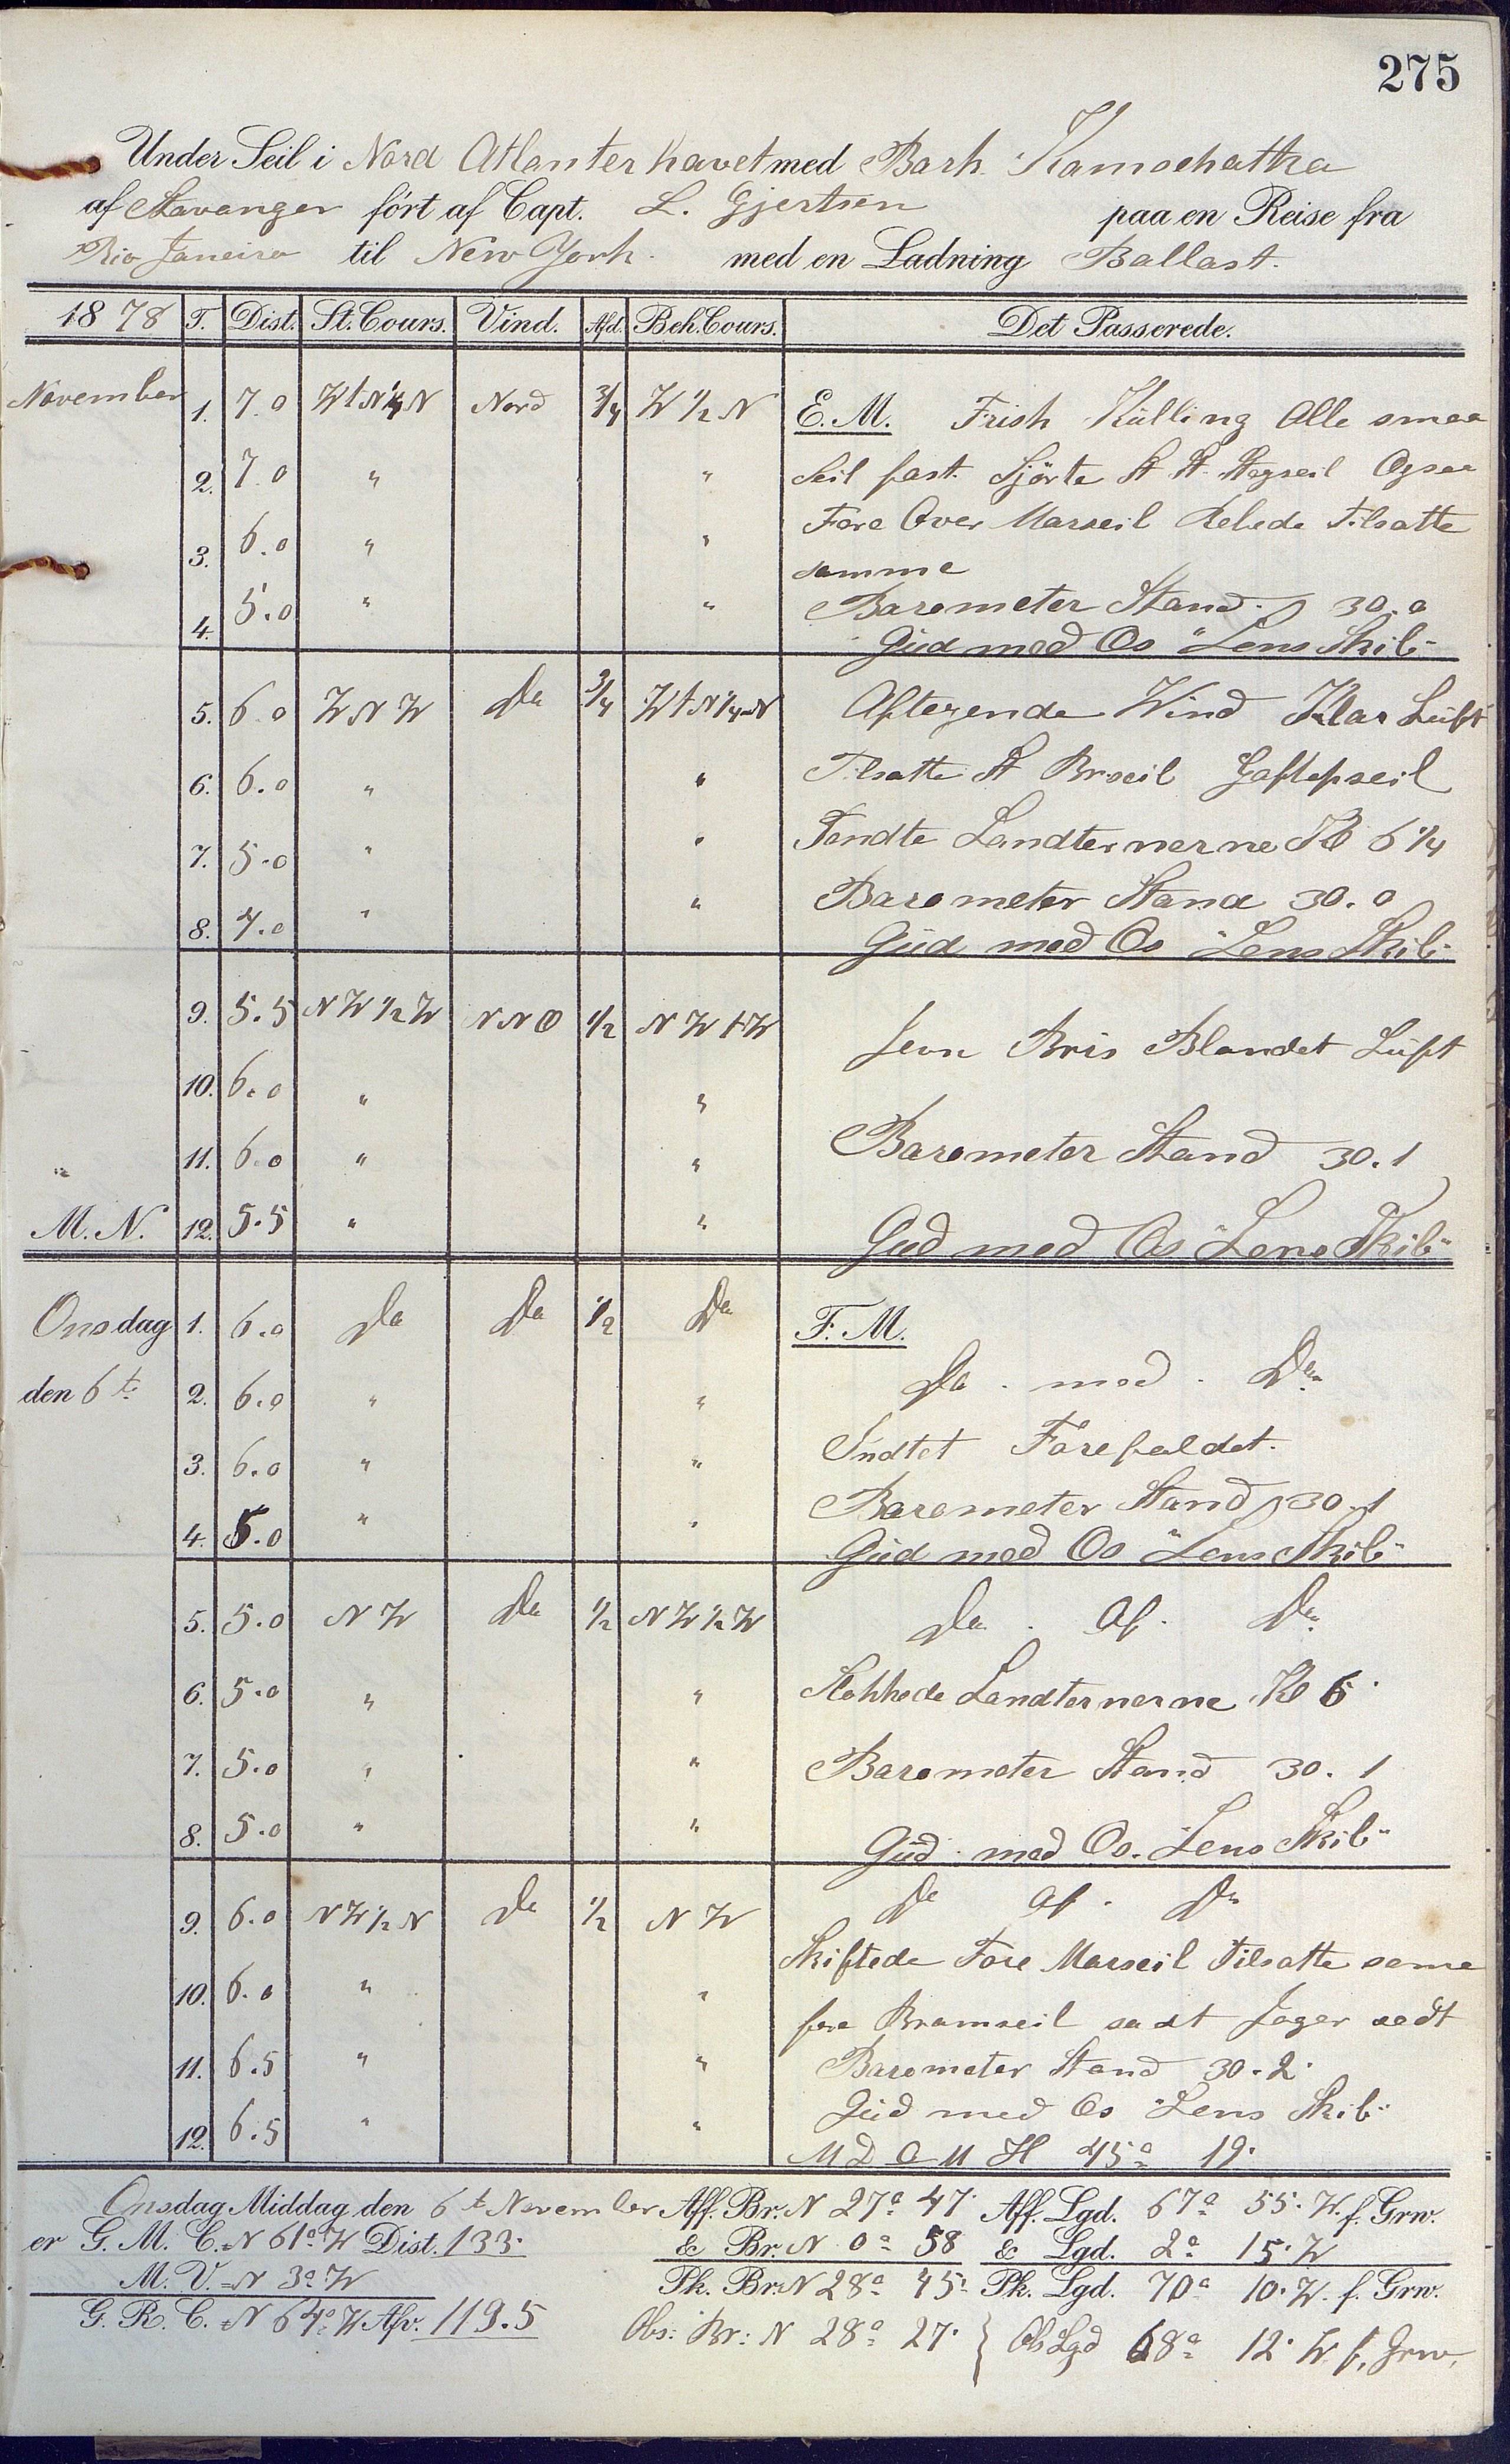 275
Under Seil i Nord Atlanterhavet med Bark. Kamschatka
af Stavanger ført af Capt. L. Gjertsen paa en Reise fra
Rio Janeiro til New York. med en Ladning Ballast.
1878 T. Dist. St. Cours. Vind. Afd. Beh. Cours. Det Passerede.
November 1. 7.0 WtN¼N Nord ¾ W½N E. M. Frisk Kulling Alle smaa
2. 7.0 " " Seil fast. St. St. Stagseil Ogsaa
3. 6.0 " " Fore Over Marseil Rebede Tilsatte
samme
4. 5.0 " " Barometer Stand. 30.0
Gud med Os "Lens Skib"
5. 6.0 WNW Do ¾ WtN¼N Aftagende Wind Klar Luft
6. 6.0 " " Tilsatte St Brseil Gaftopseil
7. 5.0 " " Tendte Landternerne Kl 6¼
8. 4.0 " " Barometer Stand 30.0
Gud med Os "Lens Skib"
9. 5.5 NW½W NNO ½ NWtW Jevn Bris Blandet Luft
10. 6.0 " "
11. 6.0 " " Barometer Stand 30.1
M. N. 12. 5.5 " " Gud med Os "Lens Skib"
Onsdag 1. 6.0 Do Do ½ Do F. M.
den 6te 2. 6.0 " " Do. med. Do.
3. 6.0 " " Indtet Forefaldet.
4. 5.0 " " Barometer Stand 30.1
Gud med Os "Lens Skib"
5. 5.0 NW Do ½ NW½W Do. Af. Do.
6. 5.0 " " Slokkede Landternerne Kl 6.
7. 5.0 " " Barometer Stand 30.1
8. 5.0 " " Gud med Os. "Lens Skib"
9. 6.0 NW½N Do ½ NW Do Af. Do
Skiftede Fore Marseil Tilsatte same
10. 6.0 " " fore Bramseil sadt Jager sadt
11. 6.5 " " Barometer Stand 30.2.
12. 6.5 " " Gud med Os "Lens Skib"
45° 19'
Onsdag Middag den 6t November Aff. Br. N 27° 47' Aff. Lgd. 67° 55' W. f. Grw.
er G. M. C. N 61° W Dist. 133' & Br. N 0° 58 & Lgd. 2° 15' W
M. V. N 3° W Pk. Br. N 28° 45' Pk. Lgd. 70° 10' W. f. Grw.
G. R. C. N 64° W Afv. 119.5 Obs: Br: N 28° 27' } Ob Lgd 68° 12' W. f. Grw.